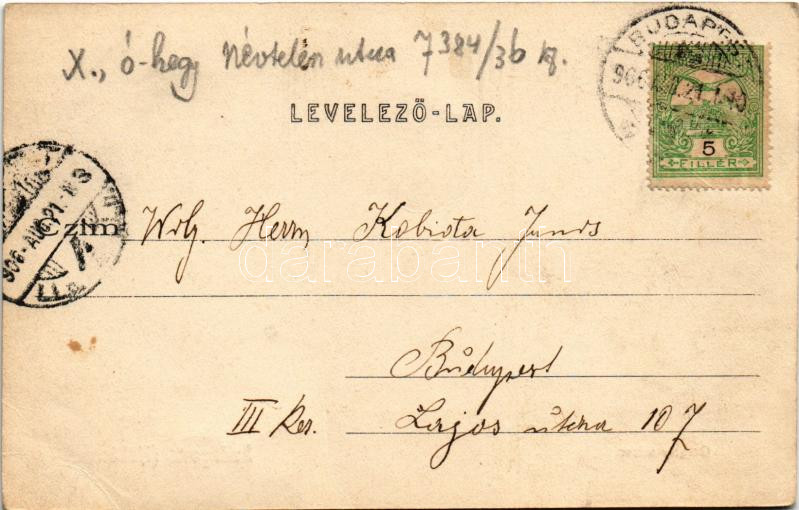 X., ó-hegy Névtelen utca 7384/36 
LEVELEZŐ-LAP.
BUDAPEST
5
FILLÉR
906 AUG 21
Czím
Wolg. Herrn Kobiota János
darabanth
Budapest
III Ker. Lajos útcza 107